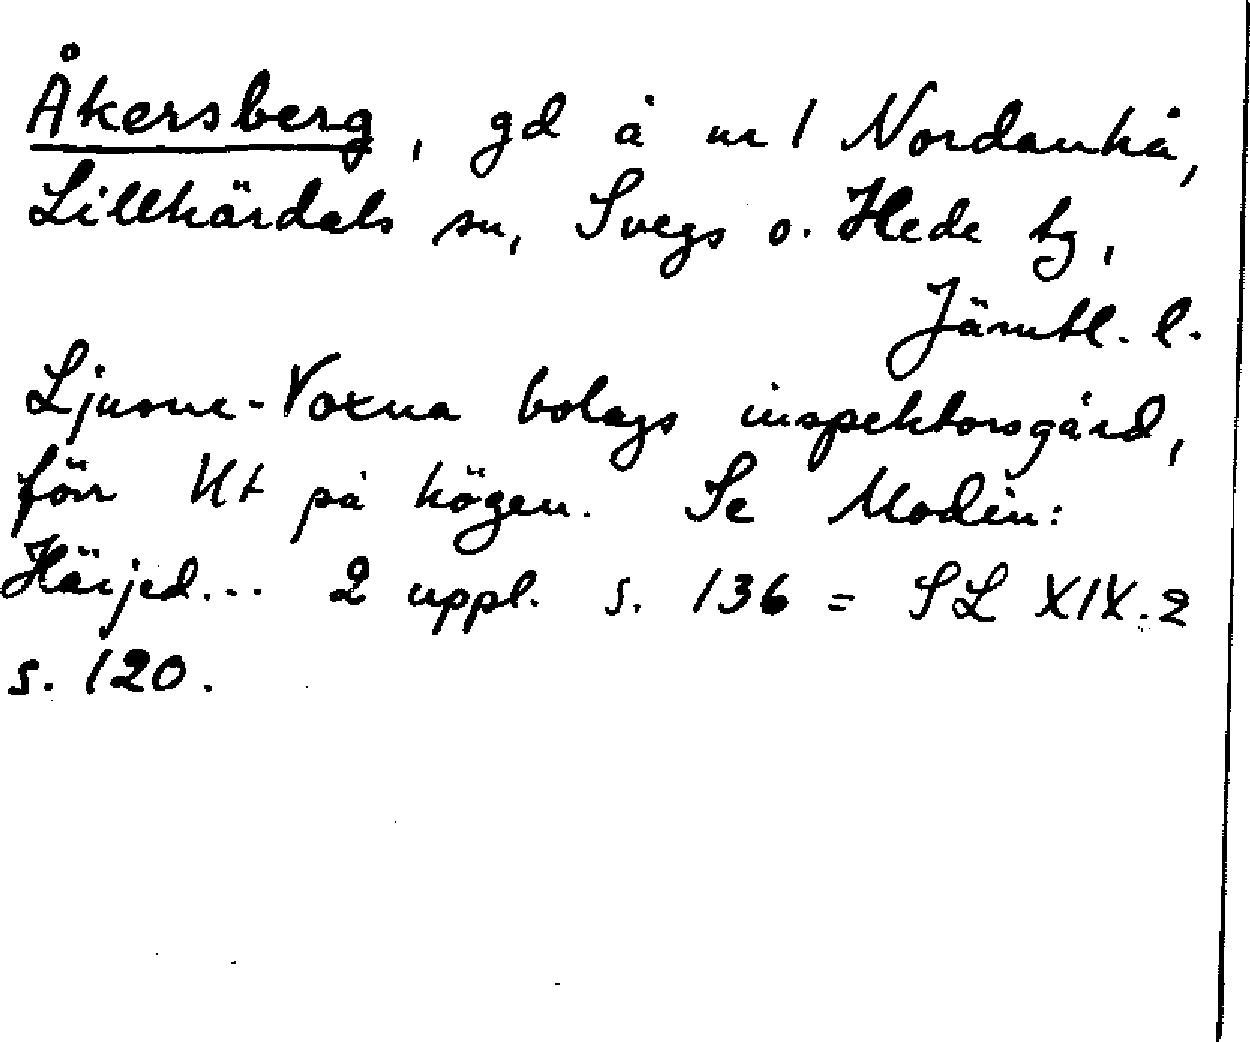 Åkersberg, gd å nr 1 Nordanhå,
Lillhärdals sn, Svegs o. Hede tg,
Jämtl. l.
Ljusne-Voxna bolags inspektorsgård,
förr Ht på högen. Se Modin:
Härjed... 2 uppl. s. 136 = SL XIX.2
s. 120.